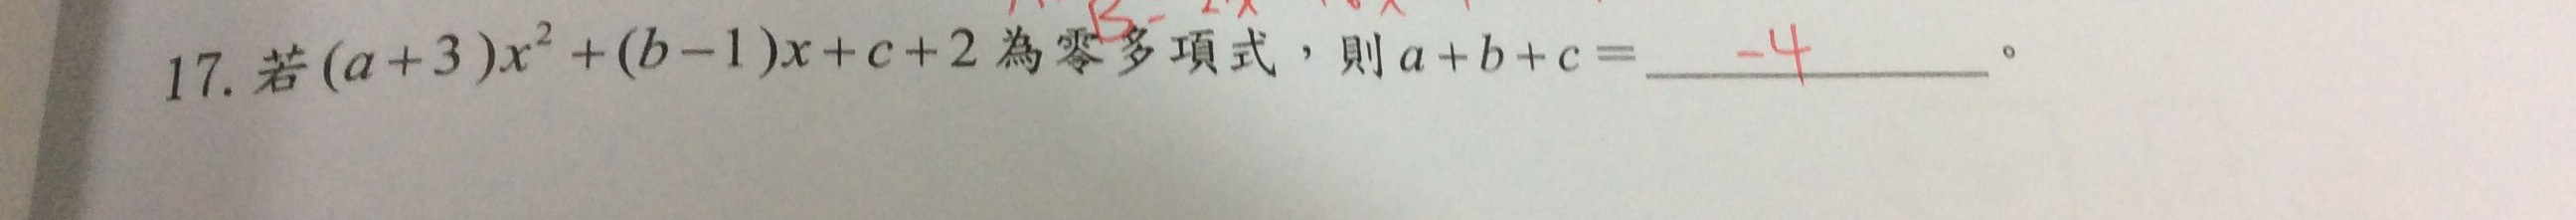 17. 若(a+3)x²+(b-1)x+c+2為零多項式，則a+b+c=-4。